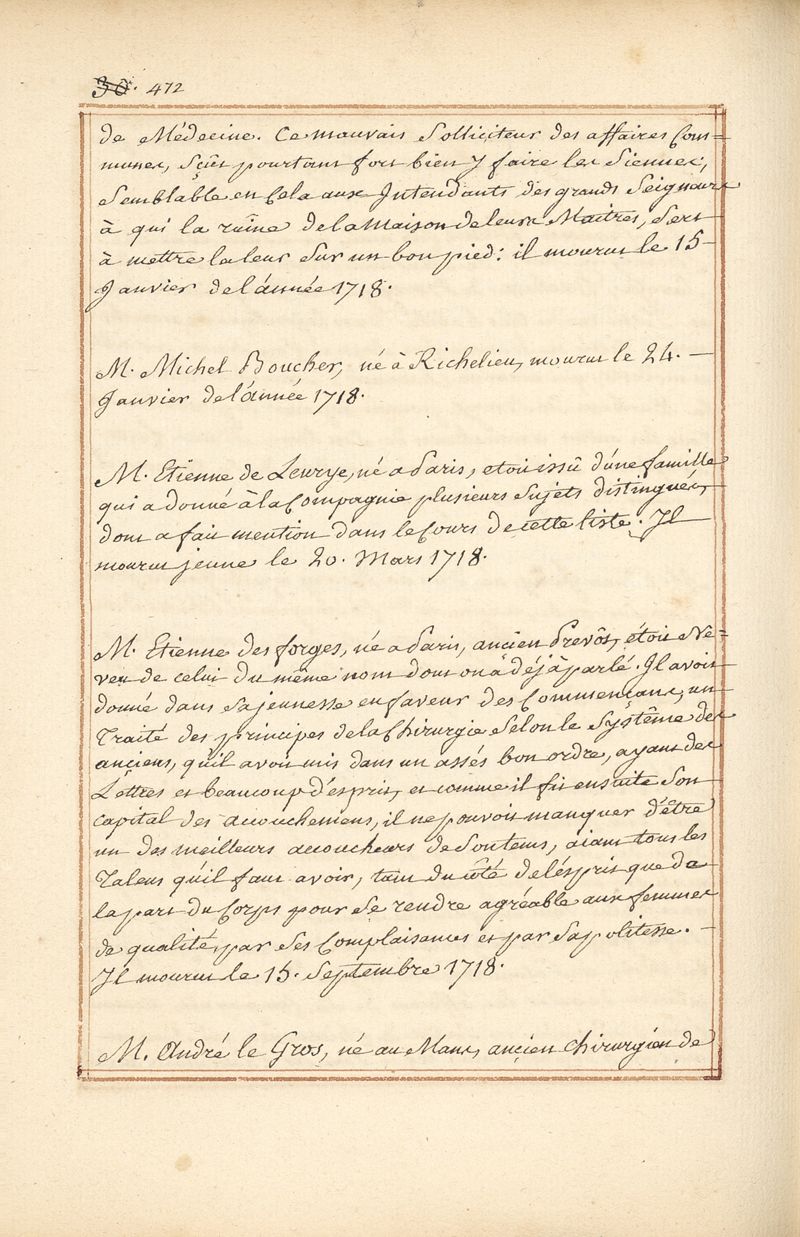 30. 472
de Médecine. Ce mauvais Solliciteur des affaires Com=
munes, Sçût pourtant fort bien y faire les Siennes,
Semblable en Cela aux Intendants des grands Seigneurs
à qui la ruine de la Maison de leurs Maitres, Sert
à mettre la leur Sur un bon pied: il mourut le 15
Janvier de l'année 1718.
M. Michel Boucher, né à Richelieu, mourut le 24. —
Janvier de l'année 1718.
M. Etienne de Leurye, né a Paris, etoit issû d'une famille
qui a donné à la Compagnie plusieurs Sujets distingués,
dont a fait mention dans le Cours de cette liste. Il
mourut jeune le 20. Mars 1718.
M. Etienne des forges, né a Paris, ancien Prevôt, étoit Ne=
veu de celui du même nom dont on a déjà parlé. Il avoit
donné dans sa jeunesse en faveur des Commençans, un
Traité des principes de la Chirurgie Selon le Systême des
anciens, qu'il avoit mis dans un assés bon ordre, ayant des
Lettres et beaucoup d'esprit, et comme il fit ensuite Son
capital des accouchemens, il ne pouvoit manquer d'être
un des meilleurs accoucheurs de Son tems, aiant tous les
Talens qu'il faut avoir, tant du côté de l'ésprit que de
la part du Corps pour Se rendre agréable aux femmes
de qualité, par Ses Complaisances et par Sa politesse. —
Il mourut le 15. Septembre 1718.
M. André le Gros, né au Mans, ancien Chirurgien de